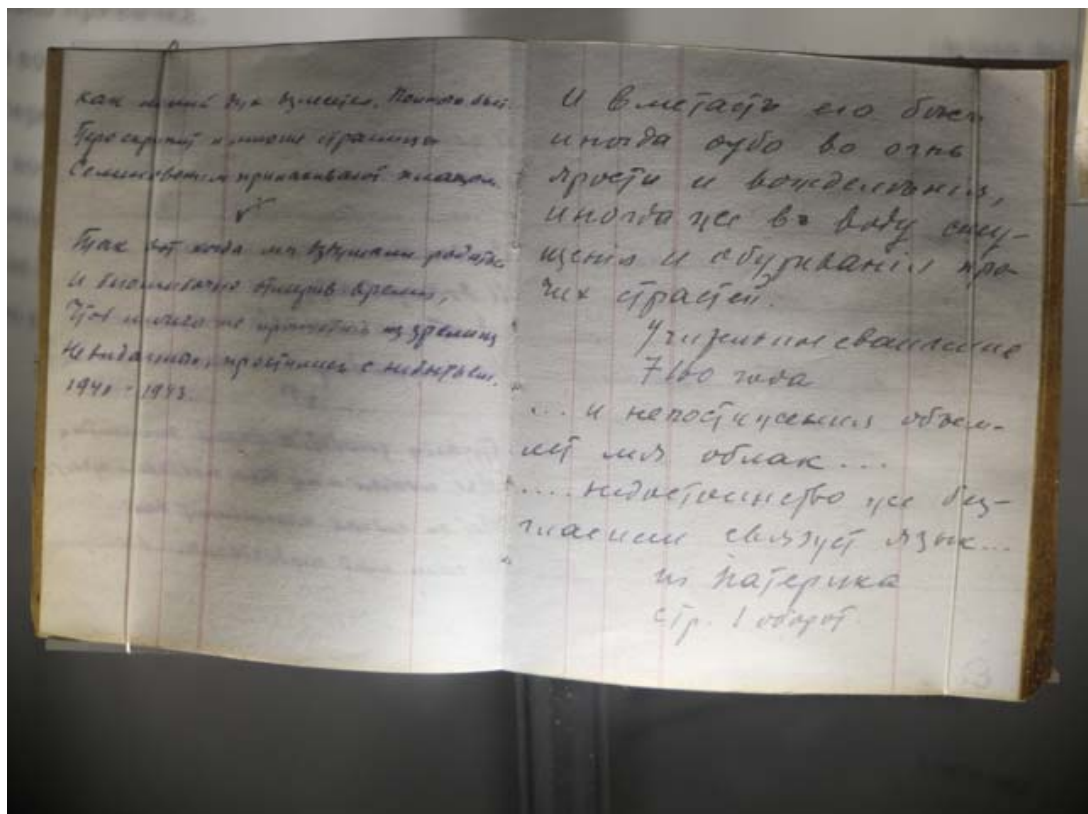 Как некий дух взнесется. Полночь бьет.
Перо скрипит и многие страницы
Семеновским припахивают плацем.
Так вот когда мы вздумали родиться
И безошибочно отмерив время,
Чтоб ничего не пропустить из зрелищ
Невиданных, простились с небытьем.
1940 - 1943.
И вметаетъ его
иногда оубо во огнь
ярости и вожделѣнія,
иногда же въ воду сму-
щенія и обуреванія про-
чих страстей.
7160 года
... и непостижения объем-
лет мя облак...
.... недостоинство же без-
гласием связует язык...
из Патерика
стр. 1 оборот